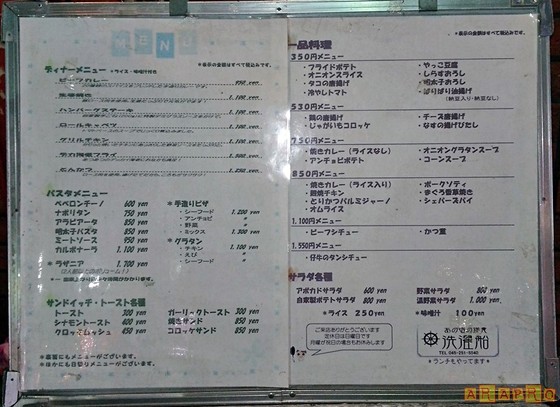 MENU
*表示の金額はすべて税込みです。
ディナーメニュー *ライス・味噌汁付き
ビーフカレー 850 yen
生姜焼き 1,100 yen
ハンバーグステーキ 1,100 yen
ロールキャベツ 1,100 yen
グリルチキン 1,100 yen
1,100 yen
とんかつ
パスタメニュー
ペペロンチーノ 600 yen
ナポリタン 750 yen
アラビアータ 850 yen
明太子パスタ 850 yen
ミートソース 950 yen
カルボナーラ 1,100 yen
*ラザニア 1,700 yen
*手造りピザ
・シーフード 1,200 yen
・アンチョビ 〃
・野菜 〃
・ミックス 1,300 yen
*グラタン
・チキン 1,100 yen
・えび 〃
・シーフード 〃
サンドイッチ・トースト各種
トースト 300 yen
シナモントースト 400 yen
クロックムッシュ 450 yen
ガーリックトースト 300 yen
焼きサンド 850 yen
コロッケサンド 850 yen
*裏面にもメニューがございます。
*ほかにも日切りメニューがございます。
*表示の金額はすべて税込みです。
一品料理
350円メニュー
・フライドポテト
・オニオンスライス
・タコの唐揚げ
・冷やしトマト
・やっこ豆腐
・しらすおろし
・明太子おろし
・ぱりぱり油揚げ
(納豆入り・納豆なし)
530円メニュー
・鶏の唐揚げ
・じゃがいもコロッケ
・チーズ唐揚げ
・なすの揚げびたし
750円メニュー
・焼きカレー(ライスなし)
・アンチョビポテト
・オニオングラタンスープ
・コーンスープ
850円メニュー
・焼きカレー(ライス入り)
・麹焼チキン
・とりかつパルミジャーノ
・オムライス
・ポークソティ
・まぐろ香草焼き
・シェパーズパイ
1,100円メニュー
・ビーフシチュー
・かつ重
1,550円メニュー
・仔牛のタンシチュー
サラダ各種
アボカドサラダ 600 yen
自家製ポテトサラダ 800 yen
野菜サラダ 850 yen
温野菜サラダ 1,000 yen
*ライス 250yen
*味噌汁 100yen
ご来店ありがとうございます
定休日は日曜日です
月曜が祝日の場合もお休みします
洗濯船
*ランチもやってます*
ARAPRO